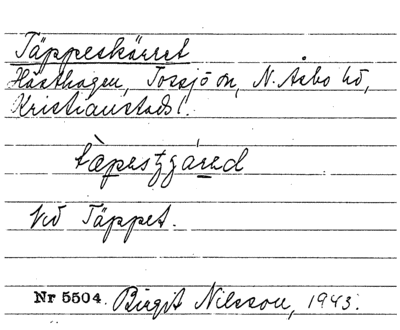 Täppeskärret
Hästhagen, Tossjö sn, N. Åsbo hd,
Kristianstads l.
Vid Täppet.
Nr 5504. Birgit Nilsson, 1943.